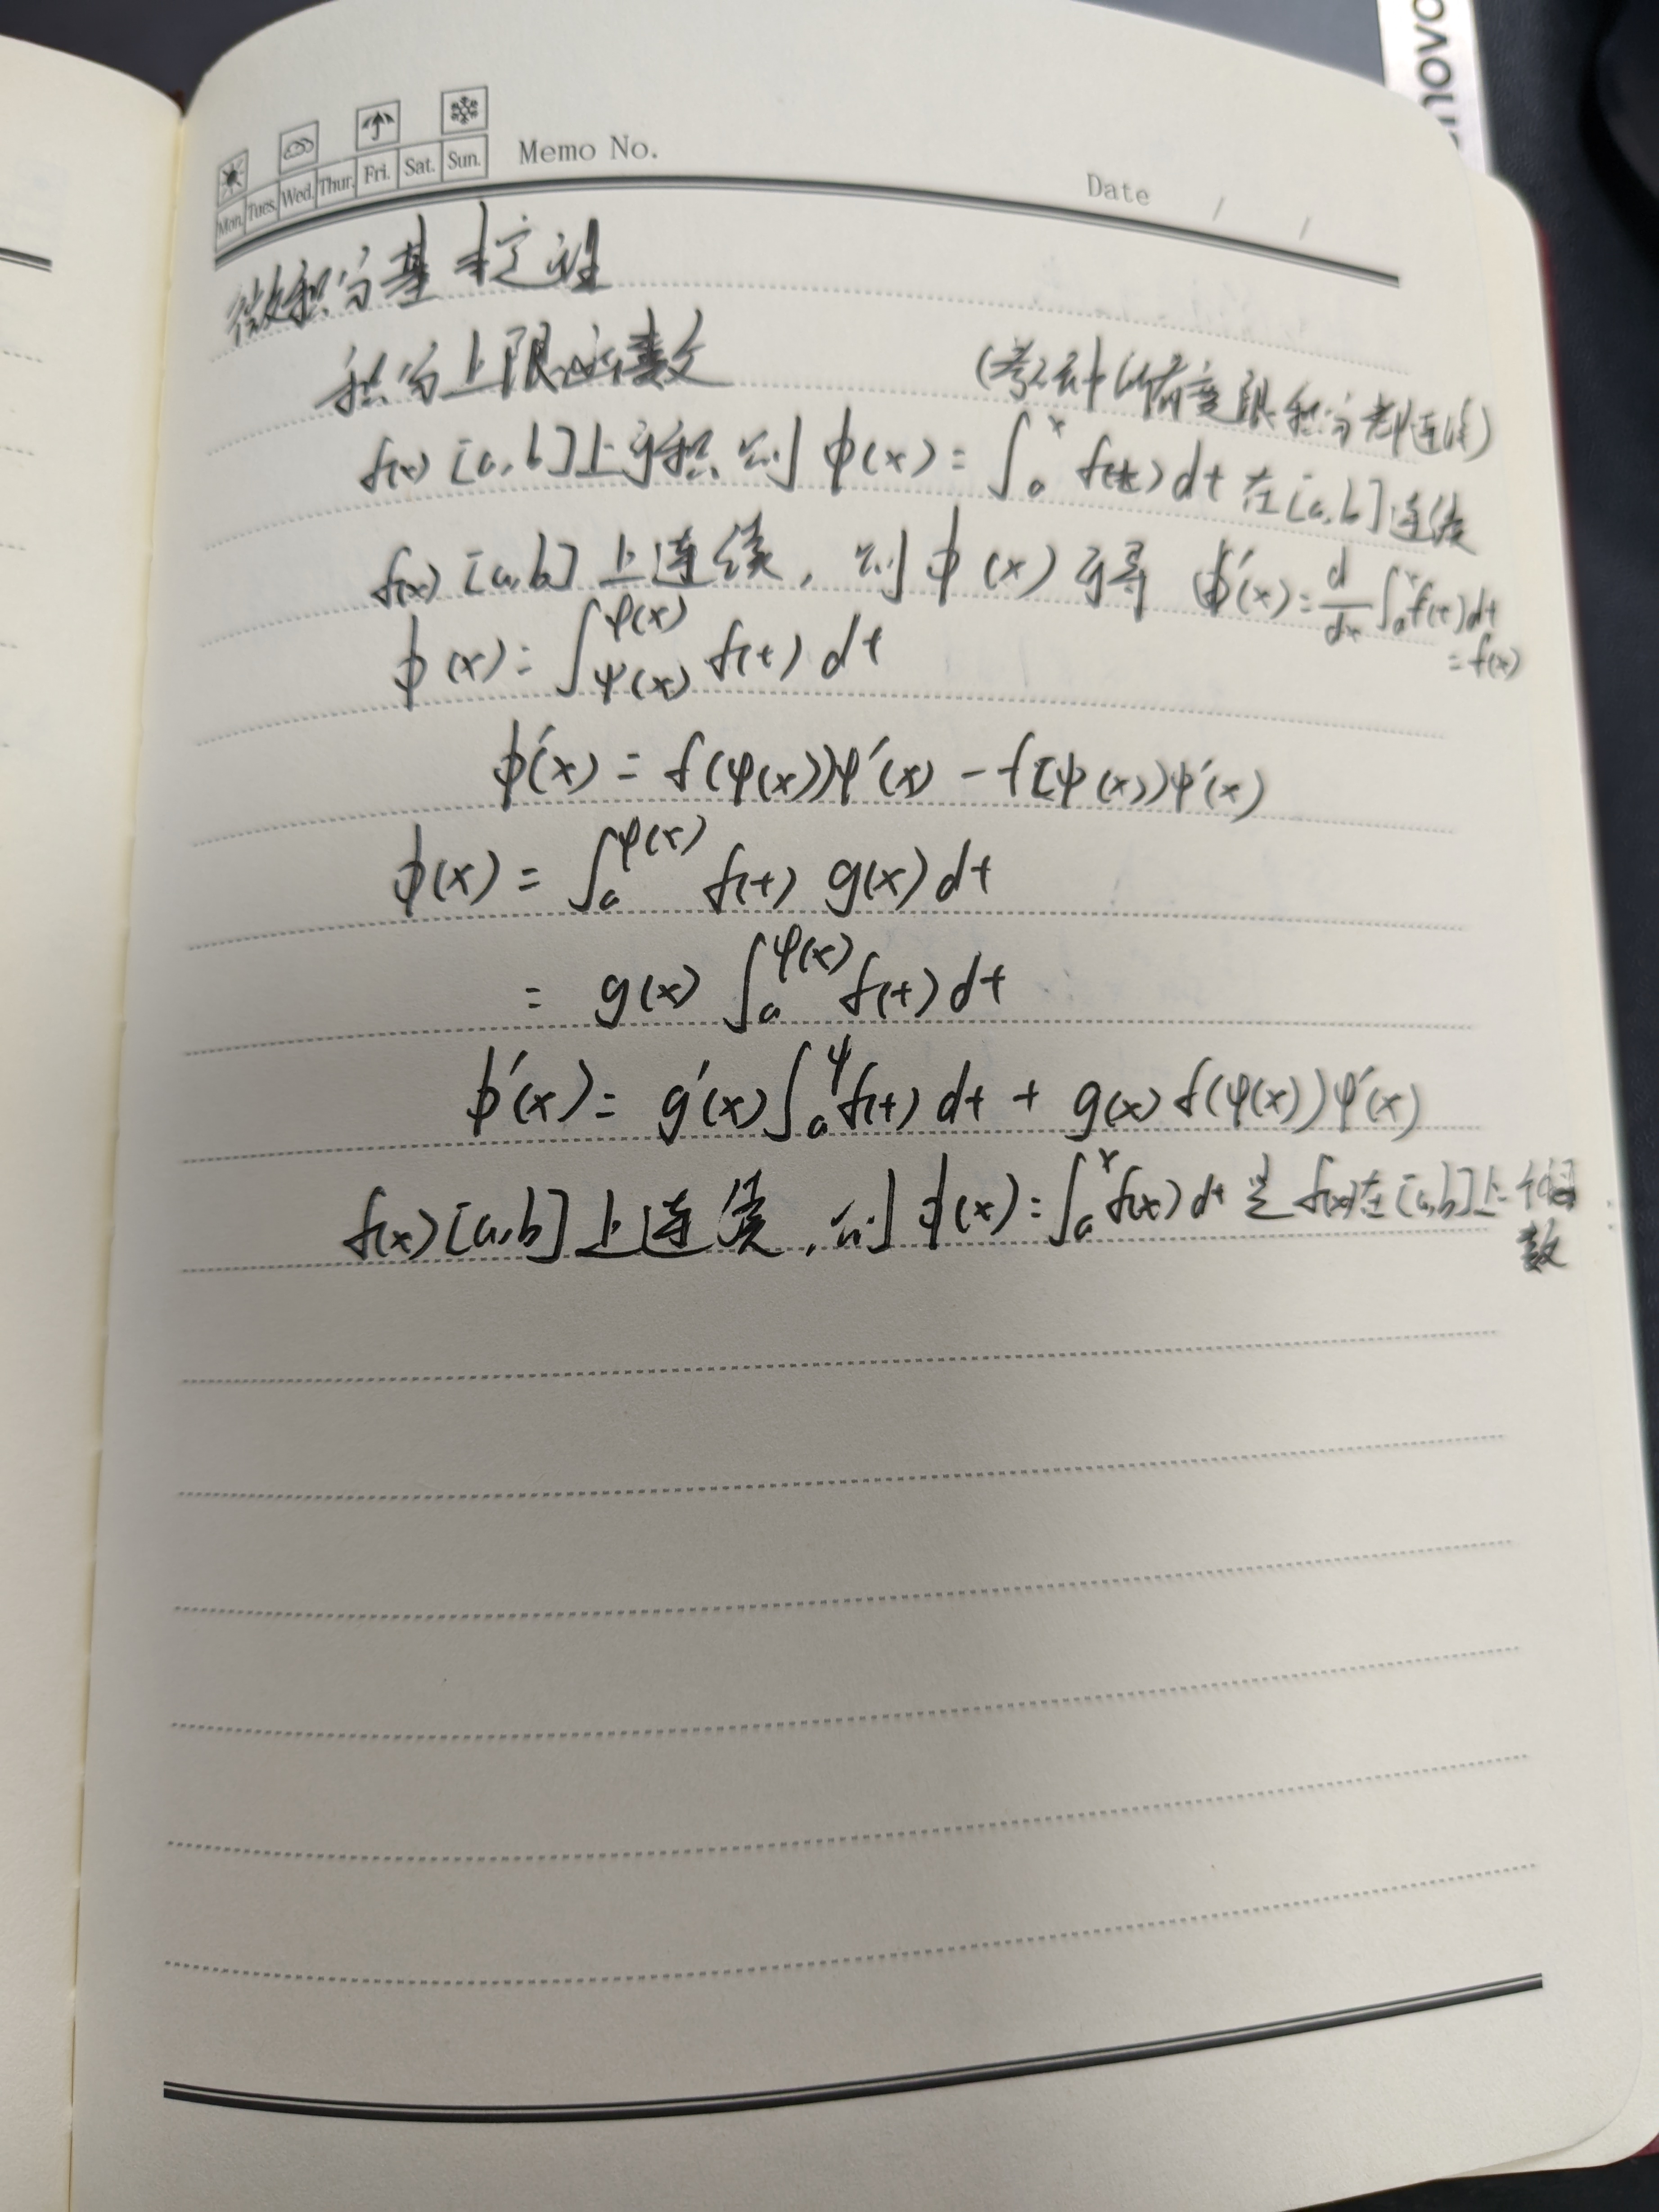 novo
Memo No.
Date / /
Mon. Tues. Wed. Thur. Fri. Sat. Sun.
微积分基本定理
积分上限函数
(考研中 变限积分都连续)
f(x) [a,b]上可积 则 ϕ(x) = ∫ₐˣ f(t) dt 在[a,b]连续
f(x) [a,b] 上连续, 则 ϕ(x) 可导 ϕ'(x) = d/dx ∫ₐˣ f(t) dt
= f(x)
ϕ(x) = ∫_{ψ(x)}^{φ(x)} f(t) dt
ϕ'(x) = f(φ(x))φ'(x) - f[ψ(x))ψ'(x)
ϕ(x) = ∫ₐ^{φ(x)} f(t) g(x) dt
= g(x) ∫ₐ^{φ(x)} f(t) dt
ϕ'(x) = g'(x) ∫ₐ^φ f(t) dt + g(x) f(φ(x))φ'(x)
f(x) [a,b] 上连续, 则 ϕ(x) = ∫ₐˣ f(x) dt 是 f(x)在[a,b]上一个原函
数